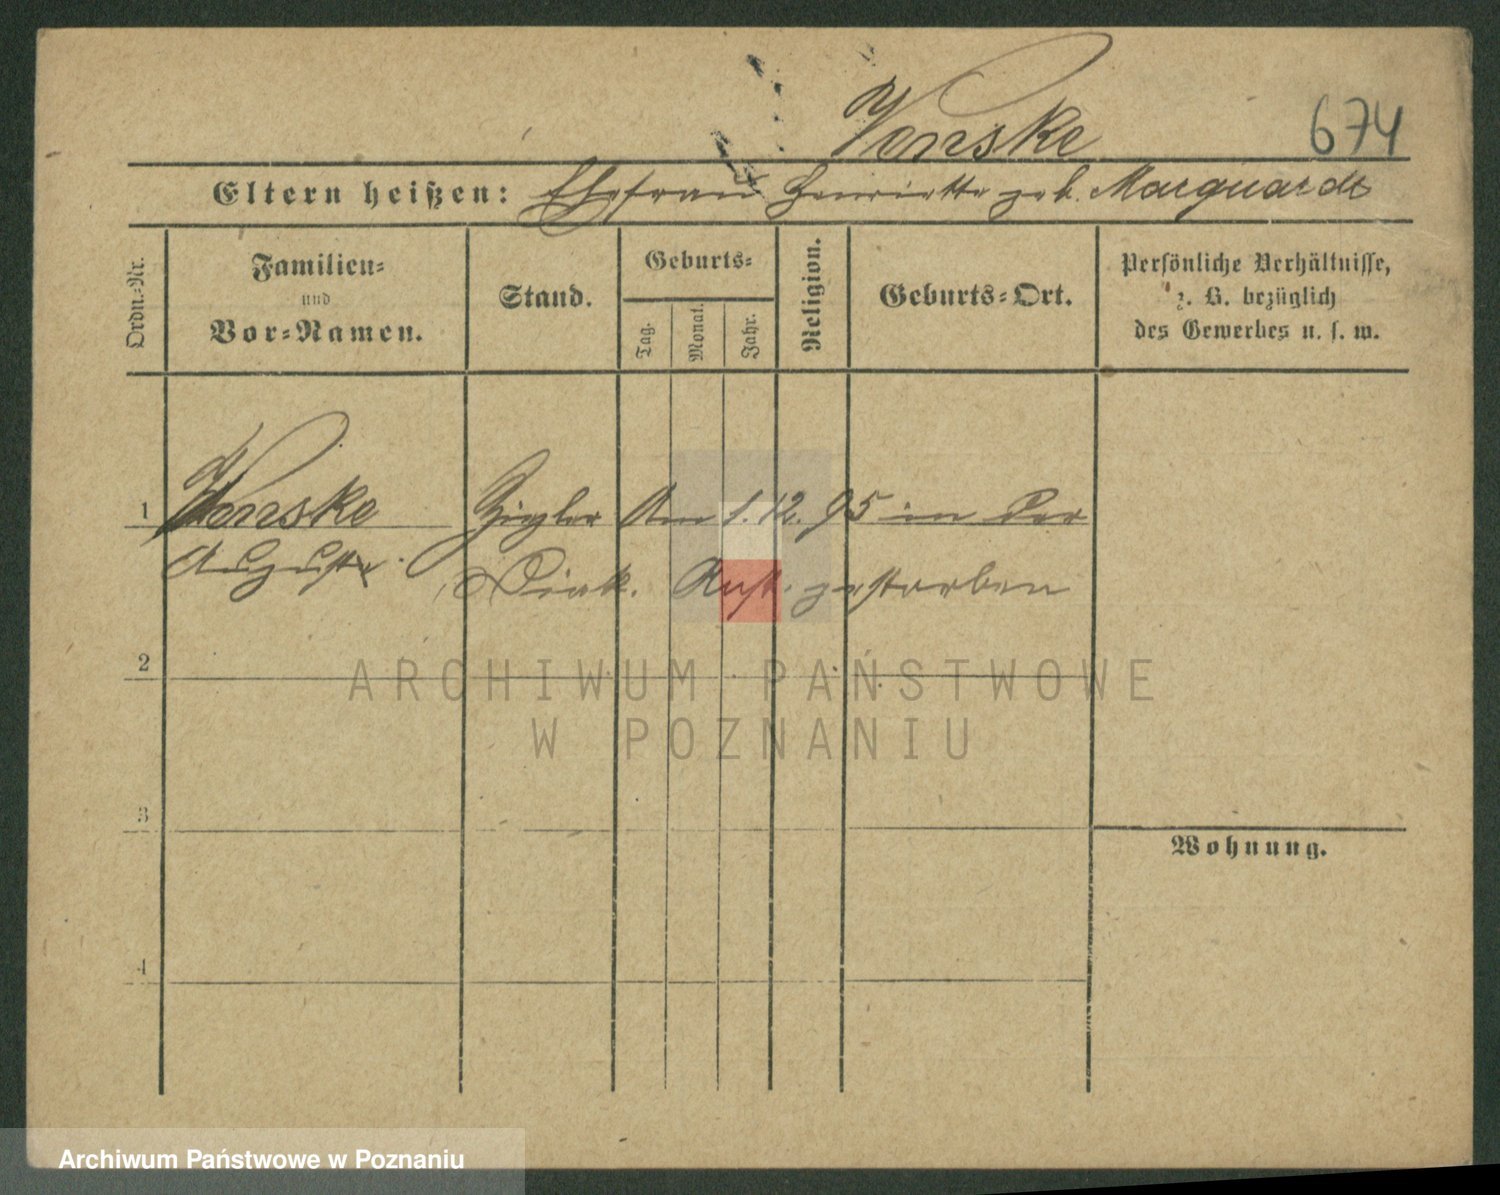 Vonske 674
Eltern heißen: Ehefrau Henriette geb. Marquardt
Ordn.-Nr.
Familien-
und
Vor-Namen.
Stand.
Geburts-
Tag.
Monat.
Jahr.
Religion.
Geburts-Ort.
Persönliche Verhältnisse,
z. B. bezüglich
des Gewerbes u. s. w.
1 Vonske Ziegler Am 1.12.95 in der
August Diak. Anst. gestorben
2
ARCHIWUM PAŃSTWOWE
W POZNANIU
3
Wohnung.
4
Archiwum Państwowe w Poznaniu